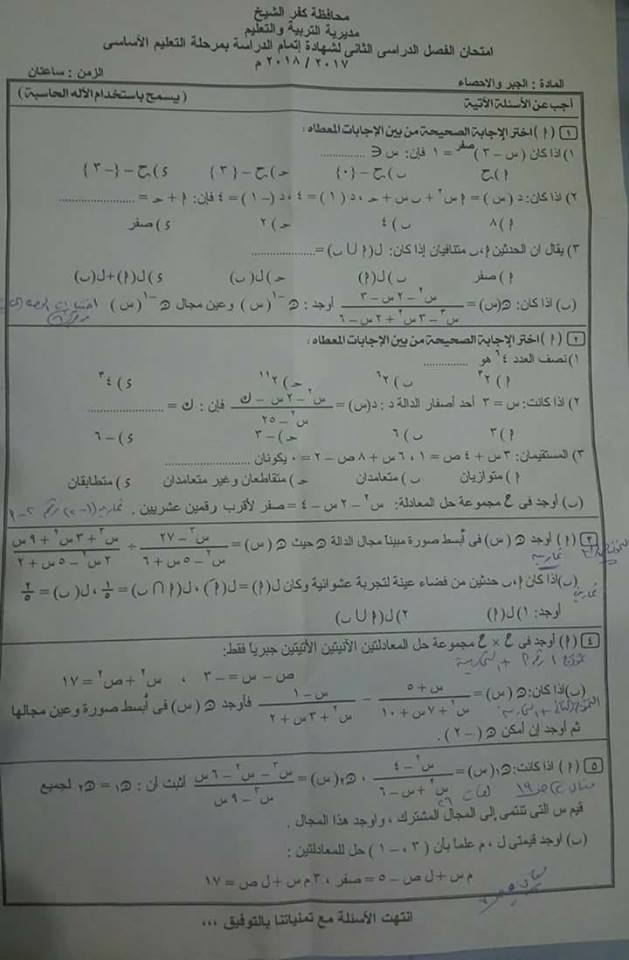 محافظة كفر الشيخ
مديرية التربية والتعليم
امتحان الفصل الدراسى الثانى لشهادة إتمام الدراسة بمرحلة التعليم الأساسى
٢٠١٧ / ٢٠١٨ م
المادة : الجبر والاحصاء الزمن : ساعتان
أجب عن الأسئلة الآتية ( يسمح باستخدام الآله الحاسبة )
١ ( ﺍ ) اختر الإجابة الصحيحة من بين الإجابات المعطاه :
١) إذا كان ( س – ٣ )^صفر = ١ فإن : س ∋ ............
ﺍ ) ح ب ) ح – {٠} حـ ) ح – {٣} ء ) ح – {–٣}
٢) اذا كان : د ( س ) = ﺍ س^٢ + ب س + حـ ، د ( ١ ) = ٤ ، د ( – ١ ) = ٤ فإن : ﺍ + حـ = ............
ﺍ ) ٨ ب ) ٤ حـ ) ٢ ء ) صفر
٣) يقال ان الحدثين ﺍ ، ب متنافيان إذا كان : ل ( ﺍ ∪ ب ) = ............
ﺍ ) صفر ب ) ل ( ﺍ ) حـ ) ل ( ب ) ء ) ل ( ﺍ ) + ل ( ب )
( ب ) اذا كان : ن ( س ) = (س^٢ – ٢ س – ٣) / (س^٣ – ٣ س^٢ + ٢ س – ٦) أوجد : ن^–١ ( س ) وعين مجال ن^–١ ( س )
٢ ( ﺍ ) اختر الإجابة الصحيحة من بين الإجابات المعطاه :
١) نصف العدد ٤^٦ هو ............
ﺍ ) ٢^٣ ب ) ٢^٦ حـ ) ٢^١١ ء ) ٤^٣
٢) اذا كانت : س = ٣ أحد أصفار الدالة د : د ( س ) = (س^٢ – ٢ س – ك) / (س^٢ – ٢٥) فإن : ك = ............
ﺍ ) ٣ ب ) ٦ حـ ) – ٣ ء ) – ٦
٣) المستقيمان : ٣ س + ٤ ص = ١ ، ٦ س + ٨ ص – ٢ = ٠ يكونان ............
ﺍ ) متوازيان ب ) متعامدان حـ ) متقاطعان وغير متعامدان ء ) متطابقان
( ب ) أوجد فى ح مجموعة حل المعادلة : س^٢ – ٢ س – ٤ = صفر لأقرب رقمين عشريين .
٣ ( ﺍ ) أوجد ن ( س ) فى أبسط صورة مبينا مجال الدالة ن حيث ن ( س ) = (س^٣ – ٢٧) / (س^٢ – ٥ س + ٦) ÷ (س^٣ + ٣ س^٢ + ٩ س) / (٢ س^٢ – ٥ س + ٢)
( ب ) إذا كان ﺍ ، ب حدثين من فضاء عينة لتجربة عشوائية وكان ل ( ﺍ ) = ل ( ﺍ َ ) ، ل ( ﺍ ∩ ب ) = ١/٥ ، ل ( ب ) = ٢/٥
أوجد : ١) ل ( ﺍ ) ٢) ل ( ﺍ ∪ ب )
٤ ( ﺍ ) أوجد فى ح × ح مجموعة حل المعادلتين الأتيتين الأتيتين جبرياً فقط :
ص – س = – ٣ ، س^٢ + ص^٢ = ١٧
( ب ) إذا كان : ن ( س ) = (س + ٥) / (س^٢ + ٧ س + ١٠) – (س – ١) / (س^٢ + ٣ س + ٢) فأوجد ن ( س ) فى أبسط صورة وعين مجالها
ثم أوجد إن أمكن ن ( – ٢ ) .
٥ ( ﺍ ) اذا كانت : ن١ ( س ) = (س^٢ – ٤) / (س^٢ + س – ٦) ، ن٢ ( س ) = (س^٣ – س^٢ – ٦ س) / (س^٣ – ٩ س) أثبت أن : ن١ = ن٢ لجميع
قيم س التى تنتمى إلى المجال المشترك ، واوجد هذا المجال .
( ب ) أوجد قيمتى ل ، م علما بأن ( ٣ ، – ١ ) حل للمعادلتين :
م س + ل ص – ٥ = صفر ، ٣ م س + ل ص = ١٧
انتهت الأسئلة مع تمنياتنا بالتوفيق ...